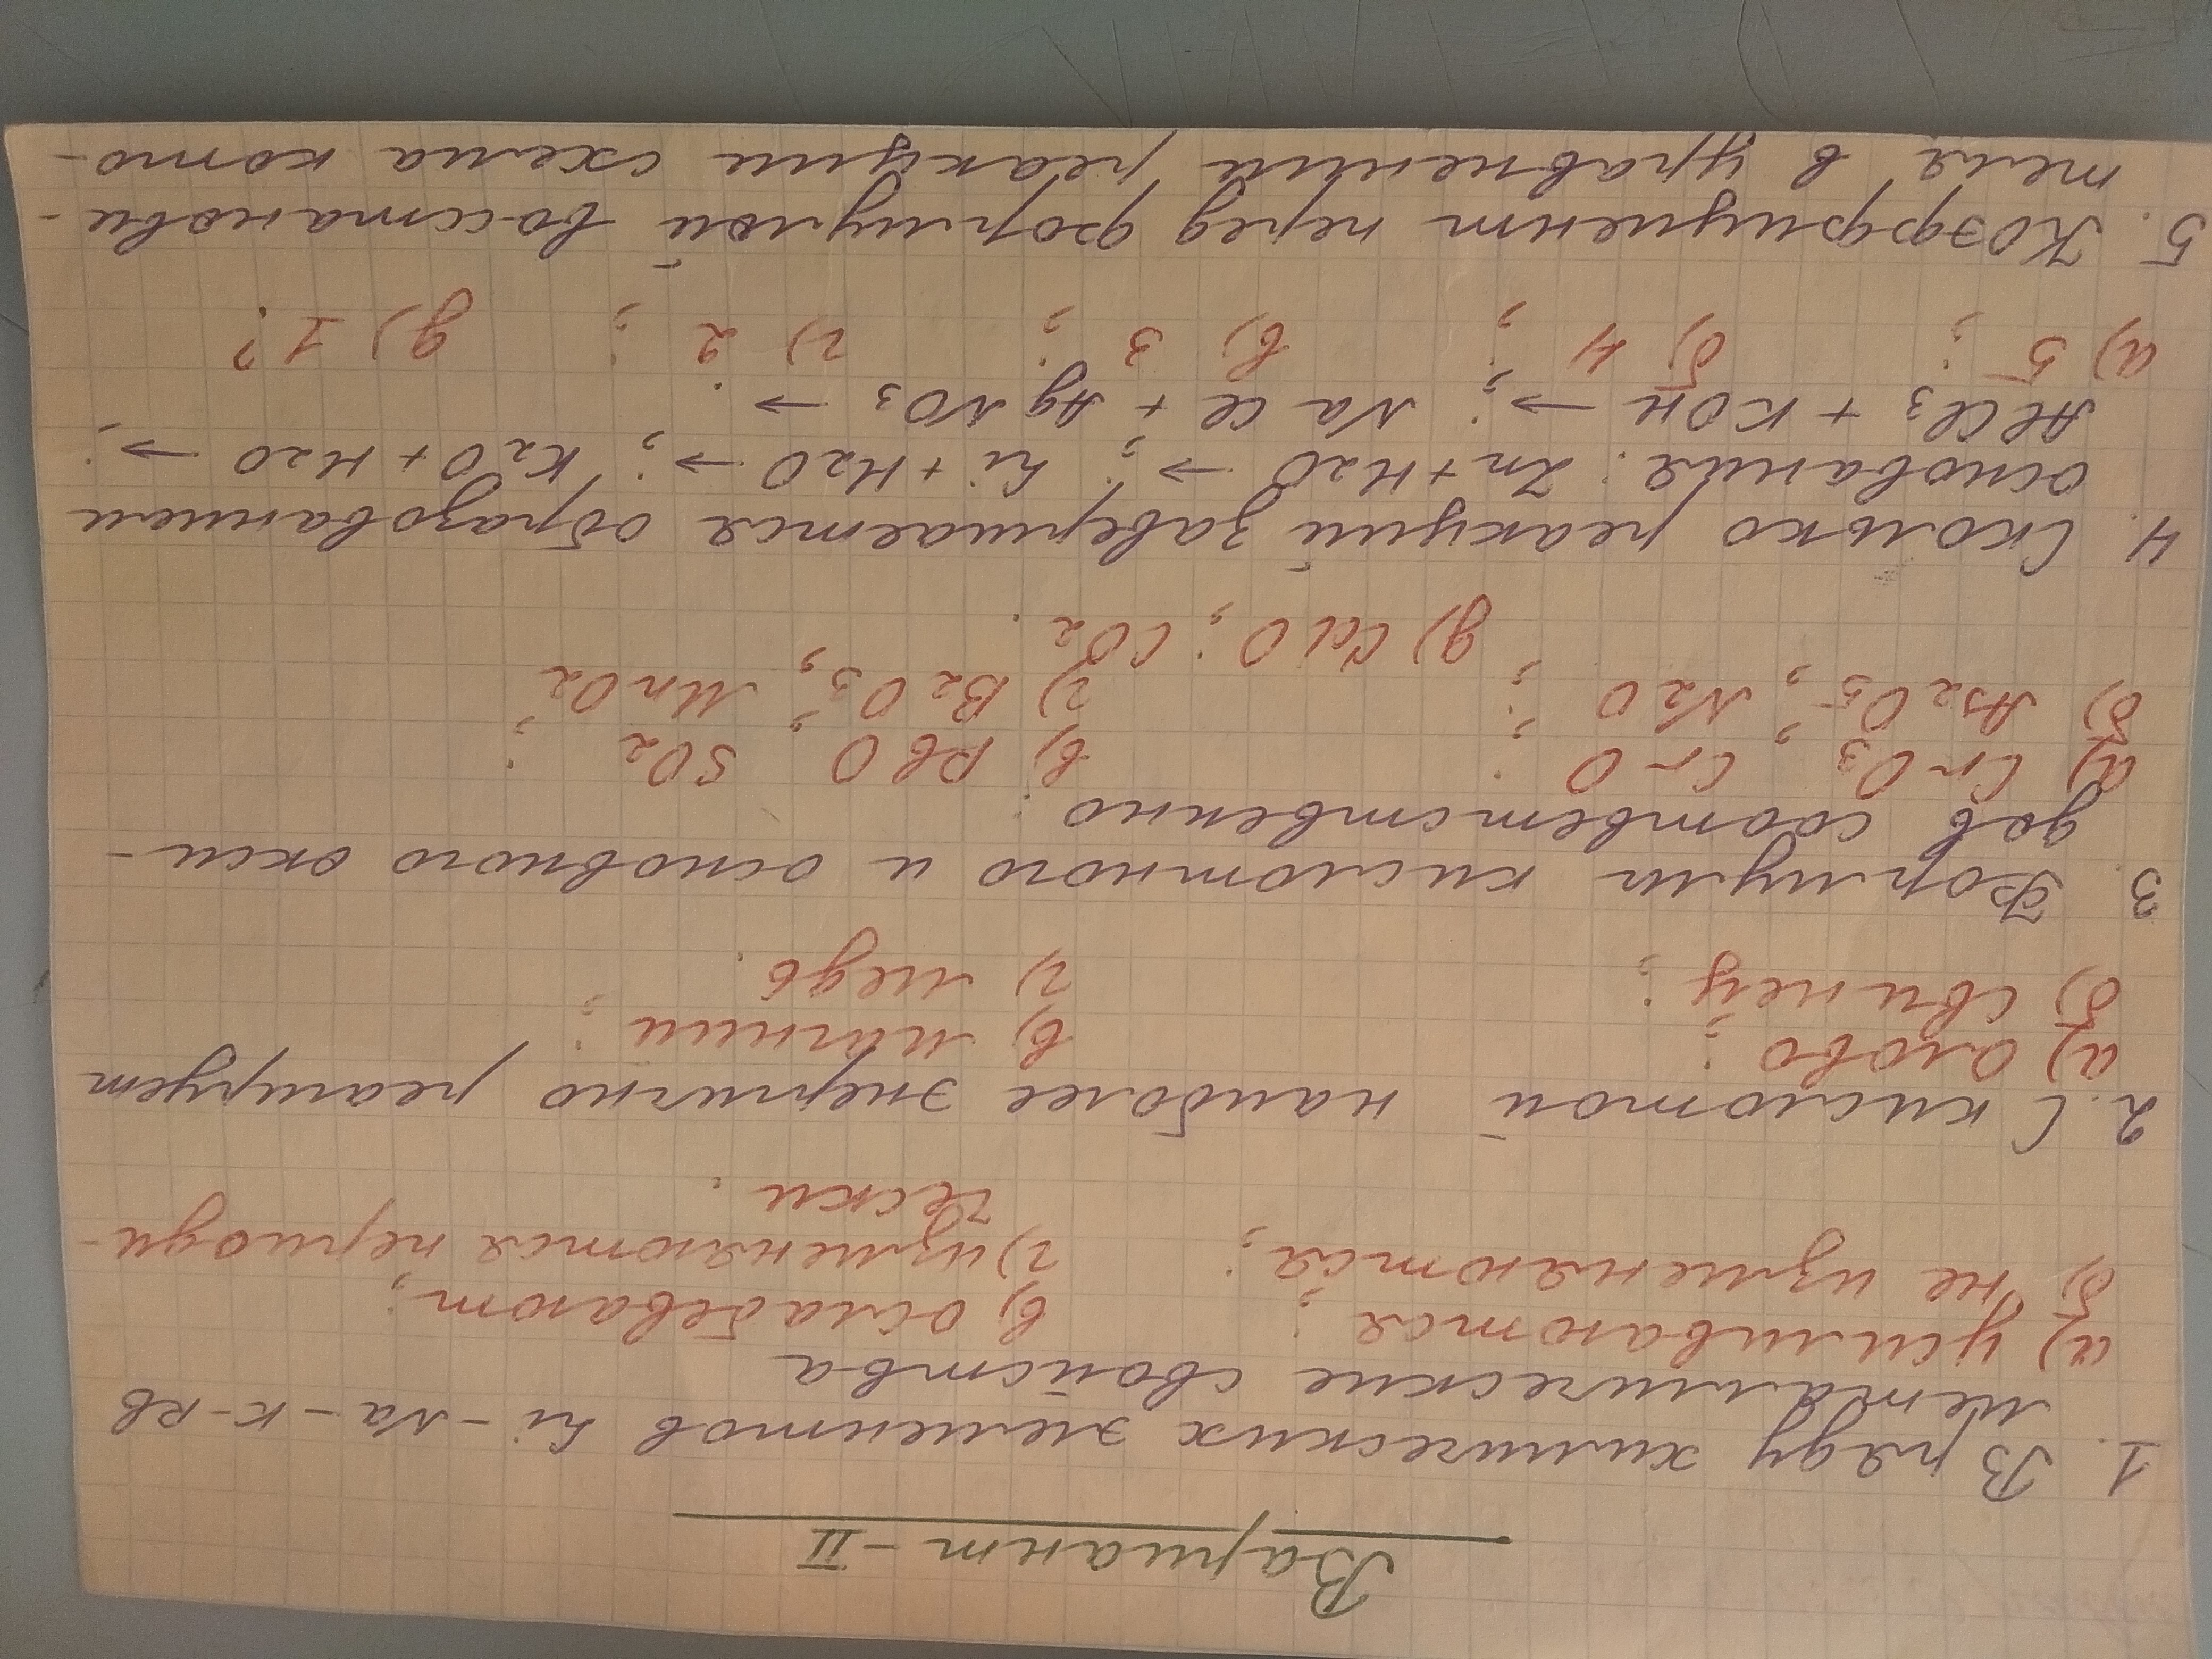 Вариант-II
1. В ряду химических элементов Li-Na-K-Rb
металлические свойства
а) усиливаются; в) ослабевают;
б) не изменяются; г) изменяются периоди-
чески.
2. С кислотой наиболее энергично реагирует
а) олово; в) магний;
б) свинец; г) медь.
3. Формулы кислотного и основного окси-
дов соответственно:
а) CrO3; CrO; в) PbO SO2;
б) As2O5; N2O; г) B2O3; MnO2
д) CdO; CO2.
4. Сколько реакций завершается образованием
основания: Zn+H2O →; Li+H2O →; K2O+H2O →;
AlCl3 + KOH →; NaCl + AgNO3 →:
а) 5; б) 4; в) 3; г) 2; д) 1?
5. Коэффициент перед формулой восстанови-
теля в уравнении реакции схема кото-